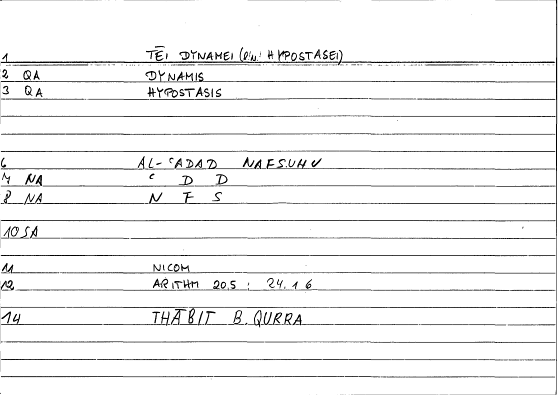 1 TĒI DYNAMEI ( HYPOSTASEI)
2 QA DYNAMIS
3 QA HYPOSTASIS
6 AL-ʿADAD NAFSUHU
7 NA ʿ D D
8 NA N F S
10 SA
11 NICOM
12 ARITHM 20.5 : 24.16
14 THĀBIT B. QURRA